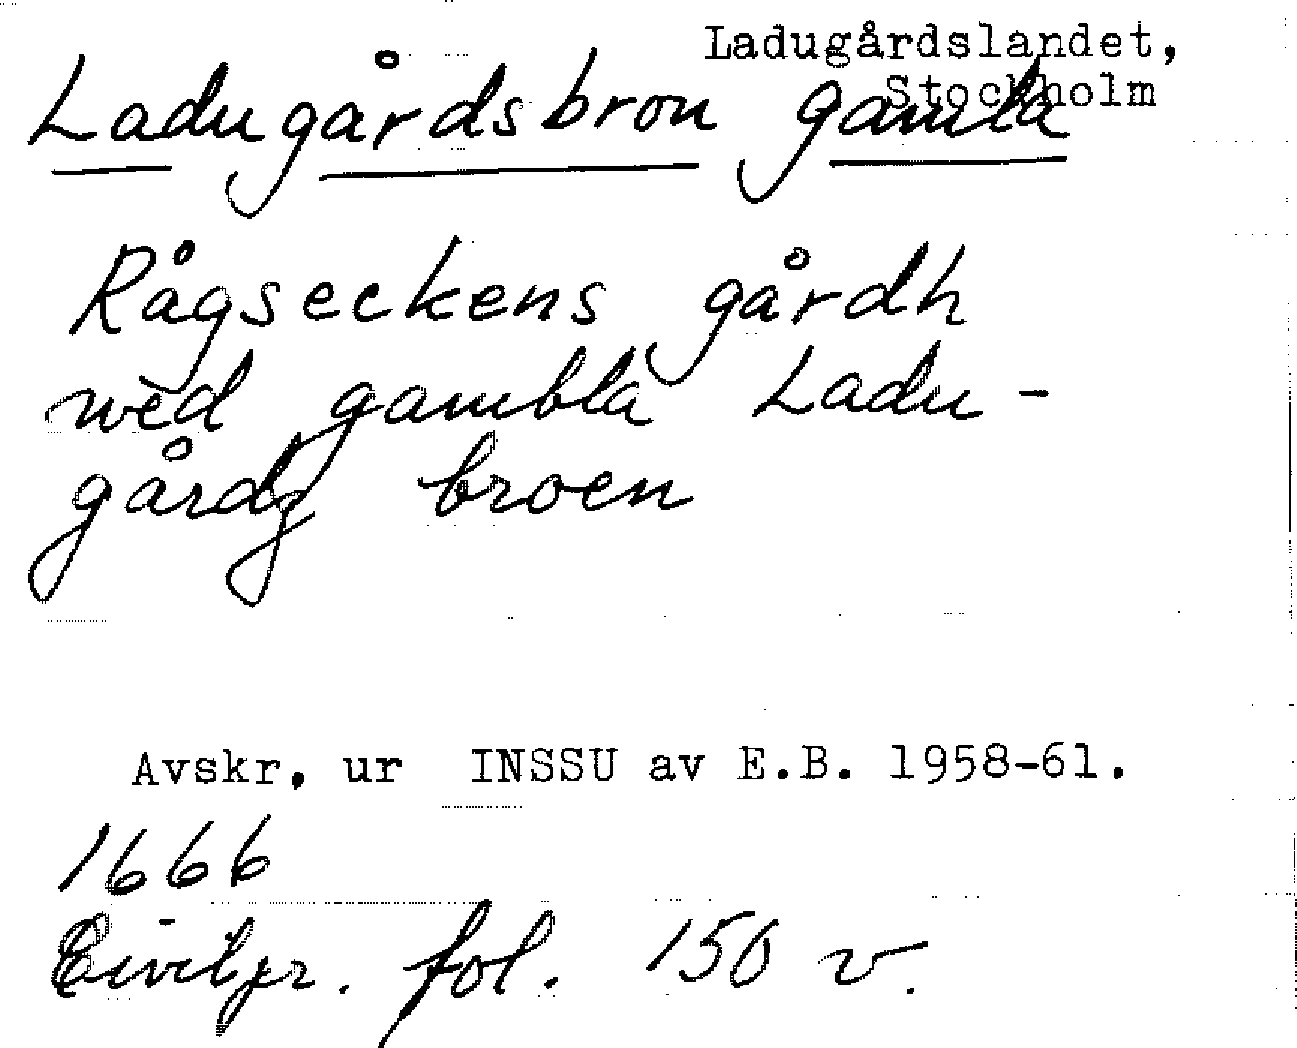 Ladugårdslandet,
Stockholm
Ladugårdsbron gamla
Rågseckens gårdh
wed gambla Ladu-
gårdz broen
Avskr. ur INSSU av E.B. 1958-61.
1666
Civilpr. fol. 150 v.